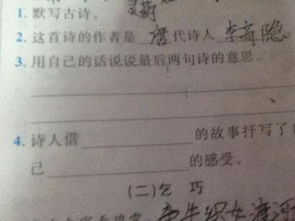 1. 默写古诗。
2. 这首诗的作者是 唐代诗人 李商隐
3. 用自己的话说说最后两句诗的意思
4. 诗人借 的故事抒写了
己 的感受。
(二)乞 巧
牵牛织女渡河